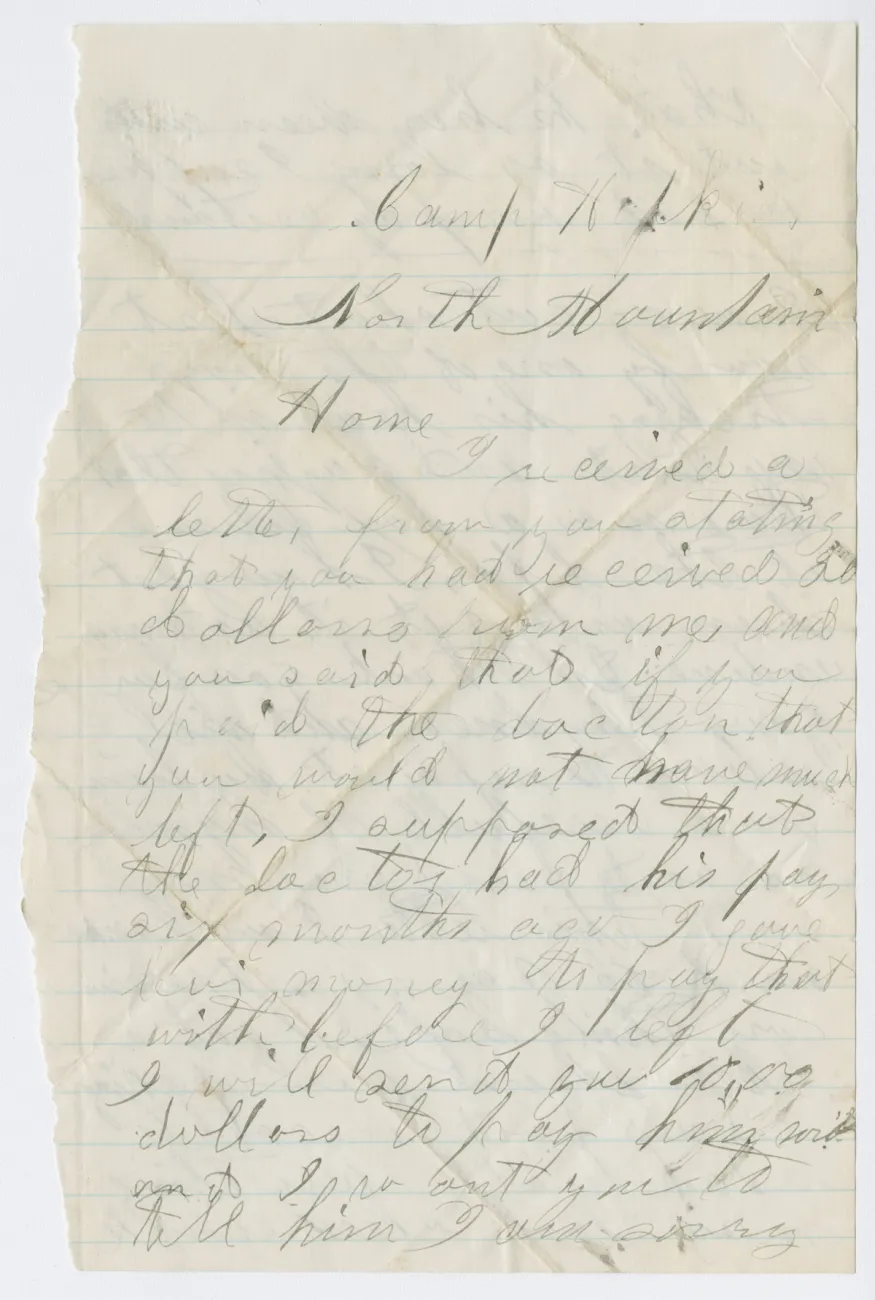 Camp Hopkins
North Mountain
Home
I received a
letter from you stating
that you had received 20
dollars from me, and
you said that if you
paid the doctor that
you would not have much
left, I supposed that
the doctor had his pay
six months ago I gave
him money to pay that
with before I left
I will send you 10,00
dollars to pay him with
and I want you to
tell him I am sorry